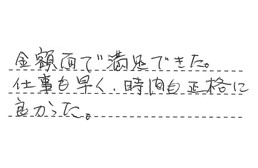 金額面で満足できた。
仕事も早く、時間も正格に
良かった。